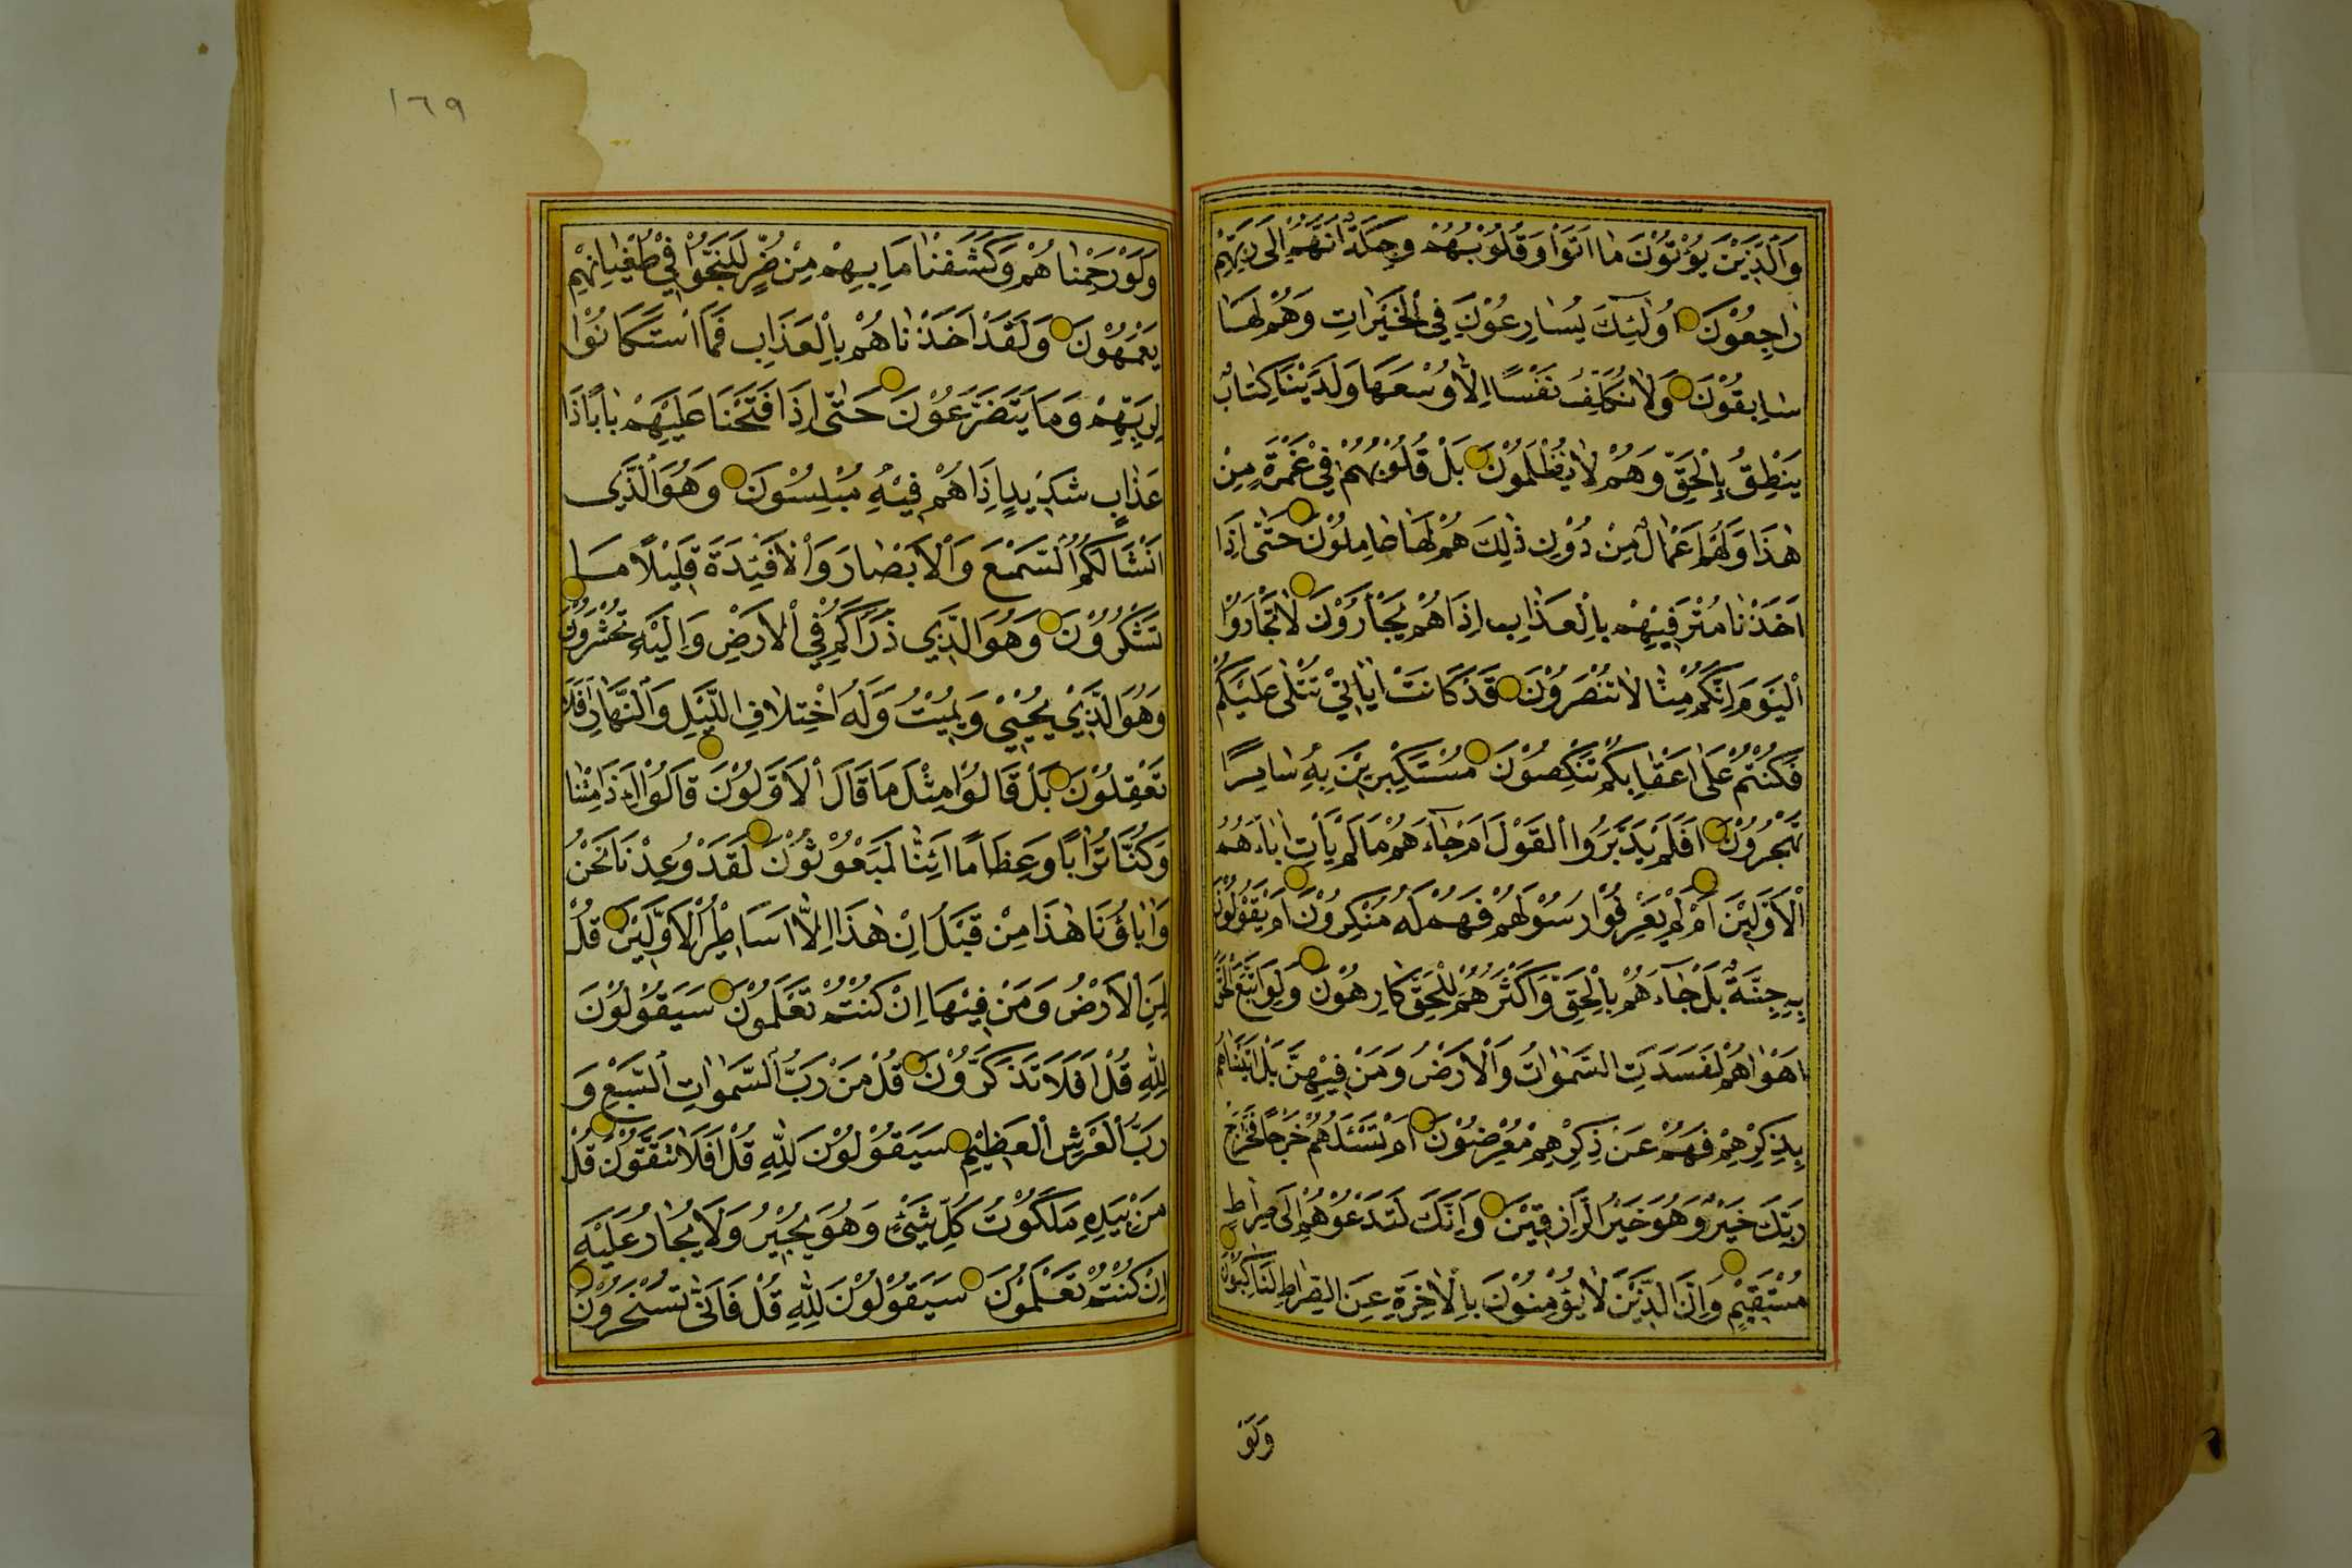 وَالَّذِيْنَ يُؤْتُوْنَ مٰا اٰتَوْا وَقُلُوْبُهُمْ وَجِلَةٌ اَنَّهُمْ اِلٰى رَبِّهِمْ
رٰاجِعُوْنَ اُولٰئِكَ يُسٰارِعُوْنَ فِي الْخَيْرَاتِ وَهُمْ لَهٰا
سٰابِقُوْنَ وَلٰا نُكَلِّفُ نَفْسًا اِلّٰا وُسْعَهَا وَلَدَيْنَا كِتٰابٌ
يَنْطِقُ بِالْحَقِّ وَهُمْ لٰا يُظْلَمُوْنَ بَلْ قُلُوْبُهُمْ فِيْ غَمْرَةٍ مِنْ
هٰذَا وَلَهُمْ اَعْمٰالٌ مِنْ دُوْنِ ذٰلِكَ هُمْ لَهٰا عٰامِلُوْنَ حَتّٰى اِذَا
اَخَذْنٰا مُتْرَفِيْهِمْ بِالْعَذٰابِ اِذَا هُمْ يَجْأَرُوْنَ لٰا تَجْأَرُوْا
الْيَوْمَ اِنَّكُمْ مِنّٰا لٰا تُنْصَرُوْنَ قَدْ كَانَتْ اٰيٰاتِيْ تُتْلٰى عَلَيْكُمْ
فَكُنْتُمْ عَلٰى اَعْقٰابِكُمْ تَنْكِصُوْنَ مُسْتَكْبِرِيْنَ بِهِ سٰامِرًا
تَهْجُرُوْنَ اَفَلَمْ يَدَّبَّرُوا الْقَوْلَ اَمْ جٰاءَهُمْ مَا لَمْ يَأْتِ اٰبٰاءَهُمُ
الْاَوَّلِيْنَ اَمْ لَمْ يَعْرِفُوْا رَسُوْلَهُمْ فَهُمْ لَهُ مُنْكِرُوْنَ اَمْ يَقُوْلُوْنَ
بِهِ جِنَّةٌ بَلْ جٰاءَهُمْ بِالْحَقِّ وَاَكْثَرُهُمْ لِلْحَقِّ كٰارِهُوْنَ وَلَوِ اتَّبَعَ الْحَقُّ
اَهْوٰاءَهُمْ لَفَسَدَتِ السَّمٰوٰاتُ وَالْاَرْضُ وَمَنْ فِيْهِنَّ بَلْ اَتَيْنٰاهُمْ
بِذِكْرِهِمْ فَهُمْ عَنْ ذِكْرِهِمْ مُعْرِضُوْنَ اَمْ تَسْئَلُهُمْ خَرْجًا فَخَرٰاجُ
رَبِّكَ خَيْرٌ وَهُوَ خَيْرُ الرَّازِقِيْنَ وَاِنَّكَ لَتَدْعُوْهُمْ اِلٰى صِرٰاطٍ
مُسْتَقِيْمٍ وَاِنَّ الَّذِيْنَ لٰا يُؤْمِنُوْنَ بِالْاٰخِرَةِ عَنِ الصِّرٰاطِ لَنٰاكِبُوْنَ
وَلَوْ
١٦٩
وَلَوْ رَحِمْنٰاهُمْ وَكَشَفْنٰا مَا بِهِمْ مِنْ ضُرٍّ لَلَجُّوْا فِيْ طُغْيٰانِهِمْ
يَعْمَهُوْنَ وَلَقَدْ اَخَذْنٰاهُمْ بِالْعَذَابِ فَمَا اسْتَكَانُوْا
لِرَبِّهِمْ وَمَا يَتَضَرَّعُوْنَ حَتّٰى اِذَا فَتَحْنَا عَلَيْهِمْ بٰابًا ذَا
عَذٰابٍ شَدِيْدٍ اِذَا هُمْ فِيْهِ مُبْلِسُوْنَ وَهُوَ الَّذِي
اَنْشَاَ لَكُمُ السَّمْعَ وَالْاَبْصٰارَ وَالْاَفْئِدَةَ قَلِيْلًا مَا
تَشْكُرُوْنَ وَهُوَ الَّذِي ذَرَاَكُمْ فِي الْاَرْضِ وَاِلَيْهِ تُحْشَرُوْنَ
وَهُوَ الَّذِيْ يُحْيِيْ وَيُمِيْتُ وَلَهُ اخْتِلٰافِ اللَّيْلِ وَالنَّهٰارِ اَفَلٰا
تَعْقِلُوْنَ بَلْ قَالُوْا مِثْلَ مَا قَالَ الْاَوَّلُوْنَ قٰالُوْا اَءِذَا مِتْنٰا
وَكُنّٰا تُرٰابًا وَعِظَامًا اَئِنّٰا لَمَبْعُوْثُوْنَ لَقَدْ وُعِدْنَا نَحْنُ
وَاٰبٰاؤُنَا هٰذَا مِنْ قَبْلُ اِنْ هٰذَا اِلّٰا اَسَاطِيْرُ الْاَوَّلِيْنَ قُلْ
لِمَنِ الْاَرْضُ وَمَنْ فِيْهَا اِنْ كُنْتُمْ تَعْلَمُوْنَ سَيَقُوْلُوْنَ
لِلّٰهِ قُلْ اَفَلَا تَذَكَّرُوْنَ قُلْ مَنْ رَبُّ السَّمٰوٰاتِ السَّبْعِ وَ
رَبُّ الْعَرْشِ الْعَظِيْمِ سَيَقُوْلُوْنَ لِلّٰهِ قُلْ اَفَلَا تَتَّقُوْنَ قُلْ
مَنْ بِيَدِهِ مَلَكُوْتُ كُلِّ شَيْئٍ وَهُوَ يُجِيْرُ وَلَا يُجٰارُ عَلَيْهِ
اِنْ كُنْتُمْ تَعْلَمُوْنَ سَيَقُوْلُوْنَ لِلّٰهِ قُلْ فَاَنّٰى تُسْحَرُوْنَ